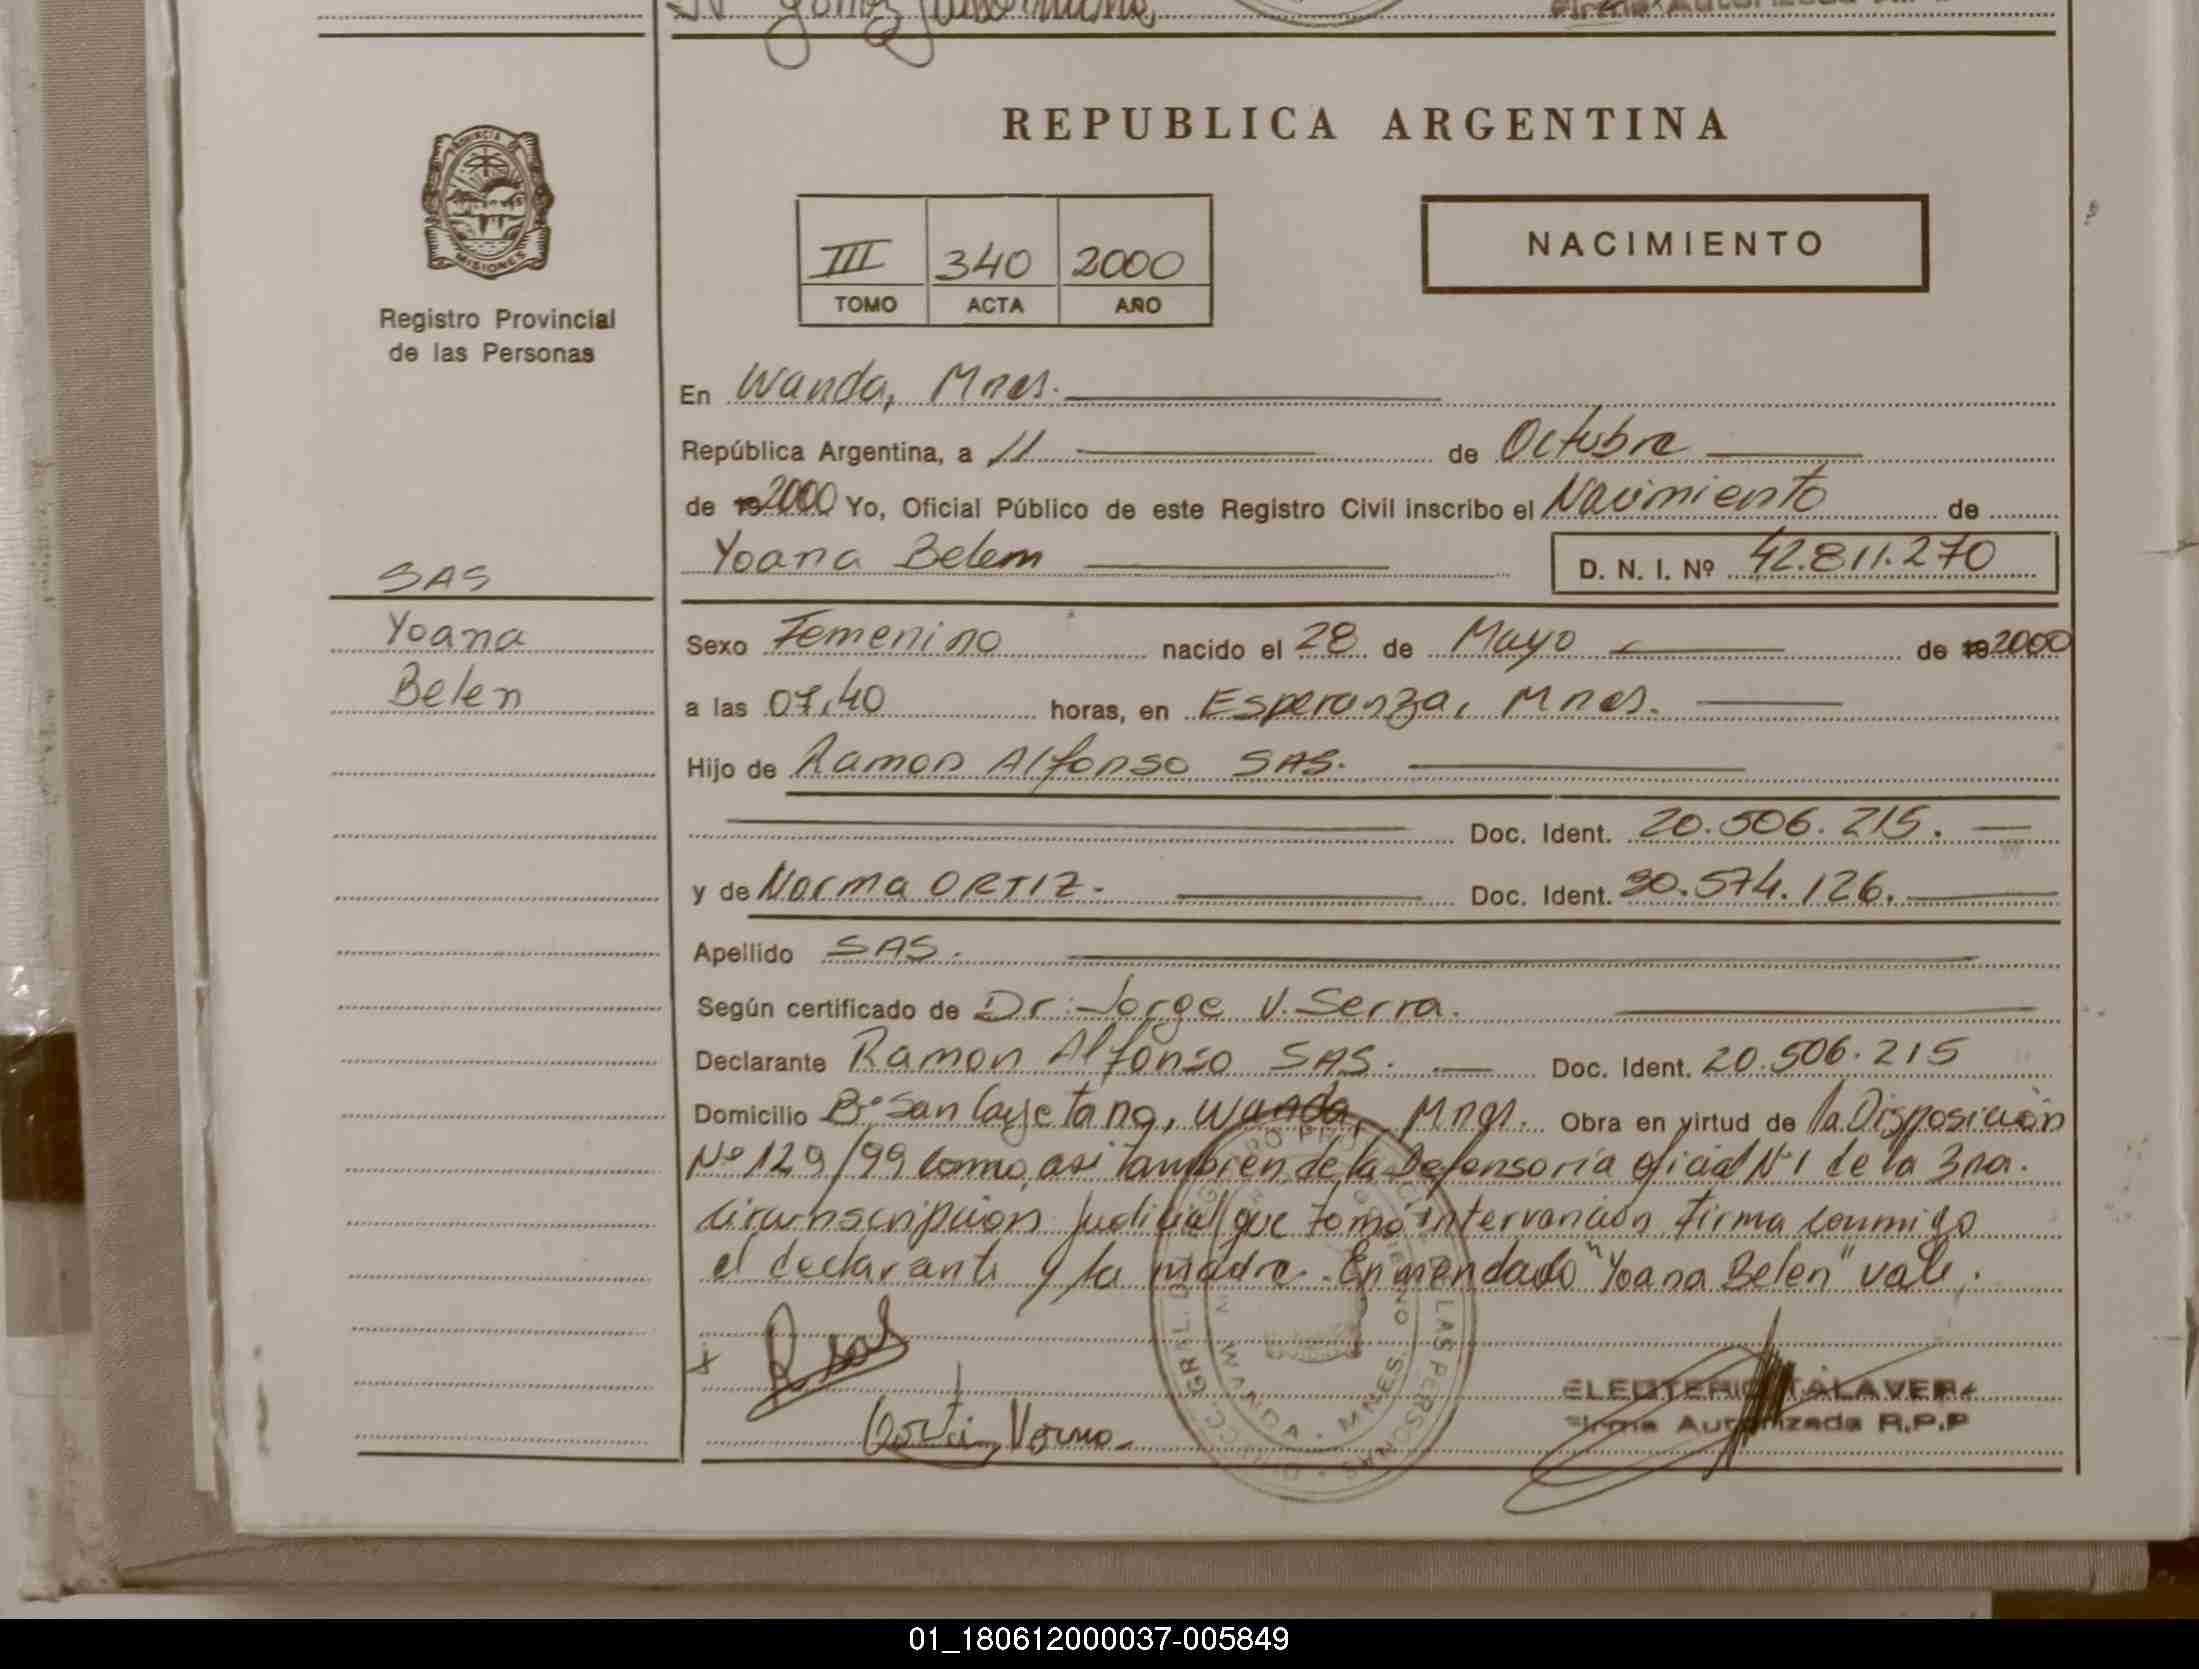 REPUBLICA ARGENTINA
PROVINCIA DE
MISIONES
Registro Provincial
de las Personas
III 340 2000
TOMO ACTA AÑO
NACIMIENTO
En Wanda, Mnes.
República Argentina, a 11 de Octubre
de 19 2000 Yo, Oficial Público de este Registro Civil inscribo el Nacimiento de
Yoana Belem D. N. I. Nº 42.811.270
SAS
Yoana
Belen
Sexo Femenino nacido el 28 de Mayo de 19 2000
a las 07,40 horas, en Esperanza, Mnes.
Hijo de Ramon Alfonso SAS.
Doc. Ident. 20.506.215.
y de Norma ORTIZ. Doc. Ident. 30.574.126.
Apellido SAS.
Según certificado de Dr. Jorge V. Serra.
Declarante Ramon Alfonso SAS. Doc. Ident. 20.506.215
Domicilio Bº San Cayetano, Wanda, Mnes. Obra en virtud de la Disposición
Nº 129/99 como, asi tambien de la Defensoria oficial Nº 1 de la 3ra.
circunscripcion judicial que tomó intervencion firma conmigo
el declarante y la madre. Enmendado "Yoana Belen" vale.
R Sas
Ortiz Norma
ELEUTERIO TALAVERA
Firma Autorizada R.P.P
01_180612000037-005849